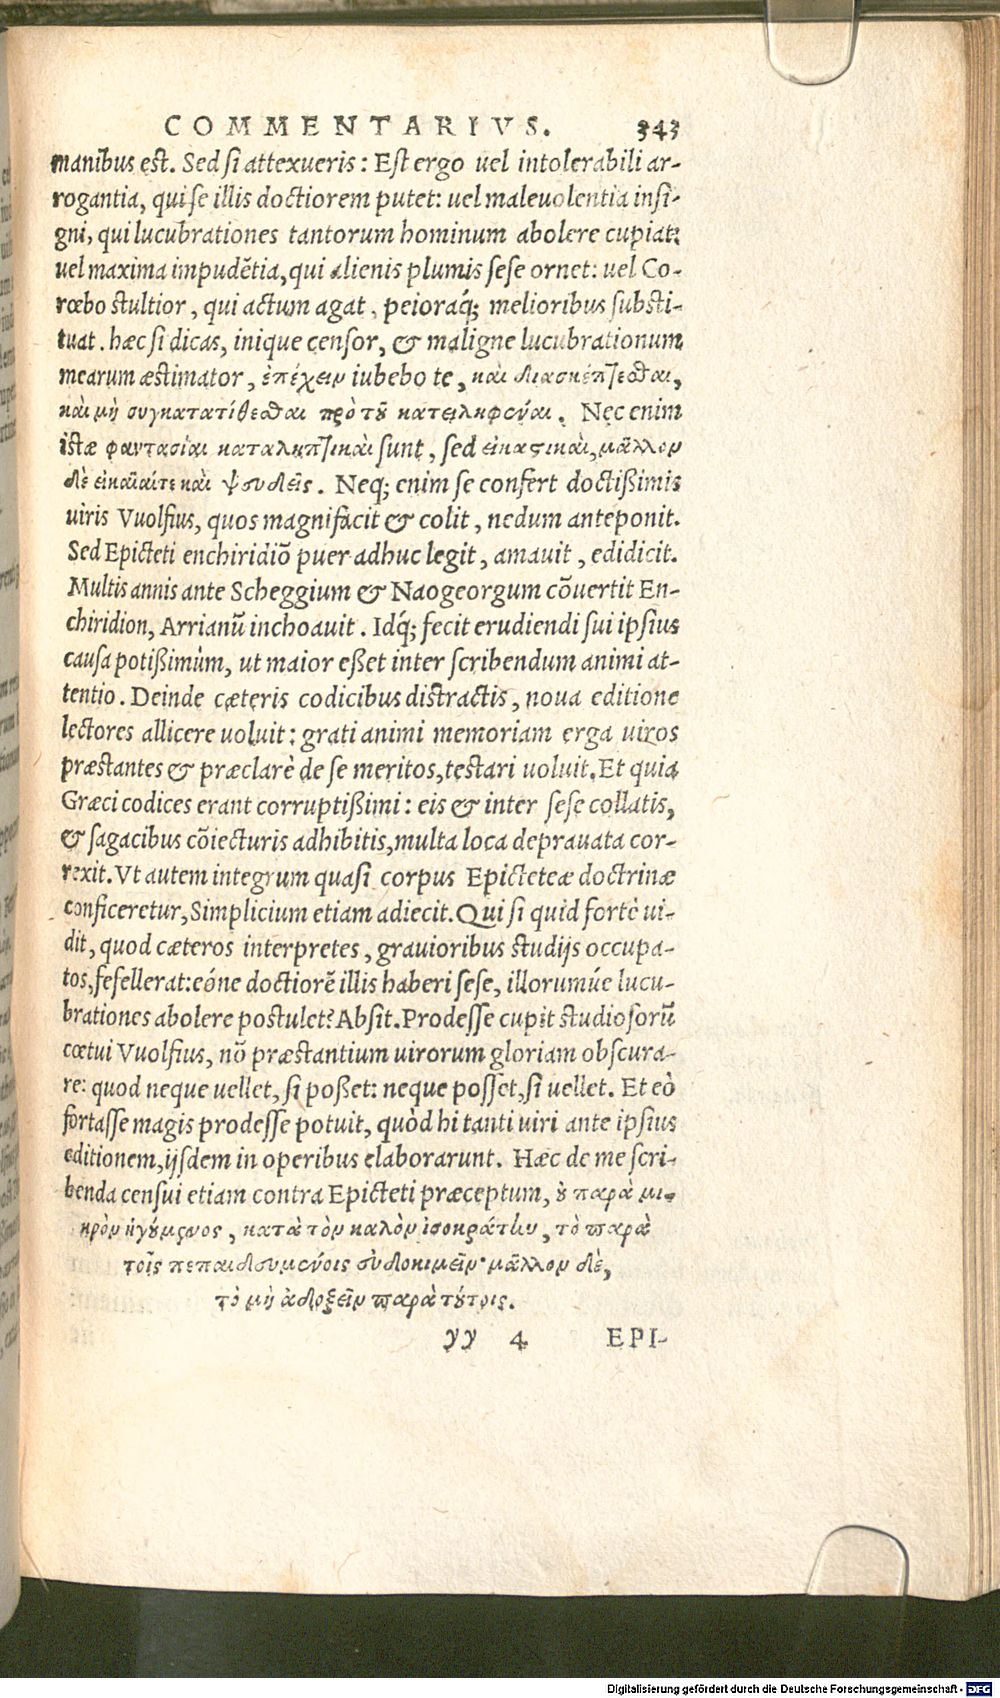 COMMENTARIVS. 343
manibus est. Sed si attexueris: Est ergo uel intolerabili ar-
rogantia, qui se illis doctiorem putet: uel maleuolentia insi-
gni, qui lucubrationes tantorum hominum abolere cupiat:
uel maxima impudẽtia, qui alienis plumis sese ornet: uel Co-
rœbo stultior, qui actum agat, peioraq́; melioribus substi-
tuat. hæc si dicas, inique censor, & maligne lucubrationum
mearum æstimator, ἐπέχειν iubebo te, καὶ διασκέπτεσθαι,
καὶ μὴ συγκατατίθεσθαι πρὸ τοῦ κατειληφέναι. Nec enim
istæ φαντασίαι καταληπτικαὶ sunt, sed εἰκαστικαὶ, μᾶλλον
δὲ εἰκαῖαί τε καὶ ψευδεῖς. Neq; enim se confert doctißimis
uiris Vuolfius, quos magnifacit & colit, nedum anteponit.
Sed Epicteti enchiridiõ puer adhuc legit, amauit, edidicit.
Multis annis ante Scheggium & Naogeorgum cõuertit En-
chiridion, Arrianũ inchoauit. Idq́; fecit erudiendi sui ipsius
causa potißimùm, ut maior eßet inter scribendum animi at-
tentio. Deinde cæteris codicibus distractis, noua editione
lectores allicere uoluit: grati animi memoriam erga uiros
præstantes & præclarè de se meritos, testari uoluit. Et quia
Græci codices erant corruptißimi: eis & inter sese collatis,
& sagacibus cõiecturis adhibitis, multa loca deprauata cor-
rexit. Vt autem integrum quasi corpus Epicteteæ doctrinæ
conficeretur, Simplicium etiam adiecit. Qui si quid fortè ui-
dit, quod cæteros interpretes, grauioribus studijs occupa-
tos, fefellerat: eóne doctiorẽ illis haberi sese, illorumúe lucu-
brationes abolere postulet? Absit. Prodesse cupit studiosorũ
cœtui Vuolfius, nõ præstantium uirorum gloriam obscura-
re: quod neque uellet, si poßet: neque posset, si uellet. Et eò
fortasse magis prodesse potuit, quòd hi tanti uiri ante ipsius
editionem, ijsdem in operibus elaborarunt. Hæc de me scri-
benda censui etiam contra Epicteti præceptum, οὐ παρὰ μι-
κρὸν ἡγούμενος, κατὰ τὸν καλὸν ἰσοκράτην, τὸ παρὰ
τοῖς πεπαιδευμένοις εὐδοκιμεῖν· μᾶλλον δὲ,
τὸ μὴ ἀδοξεῖν παρὰ τούτοις.
yy 4 EPI-
Digitalisierung gefördert durch die Deutsche Forschungsgemeinschaft - DFG